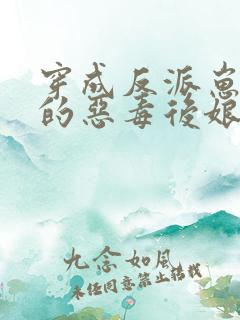 穿成反派崽
的惡毒後娘
九念如風
未经同意禁止转载